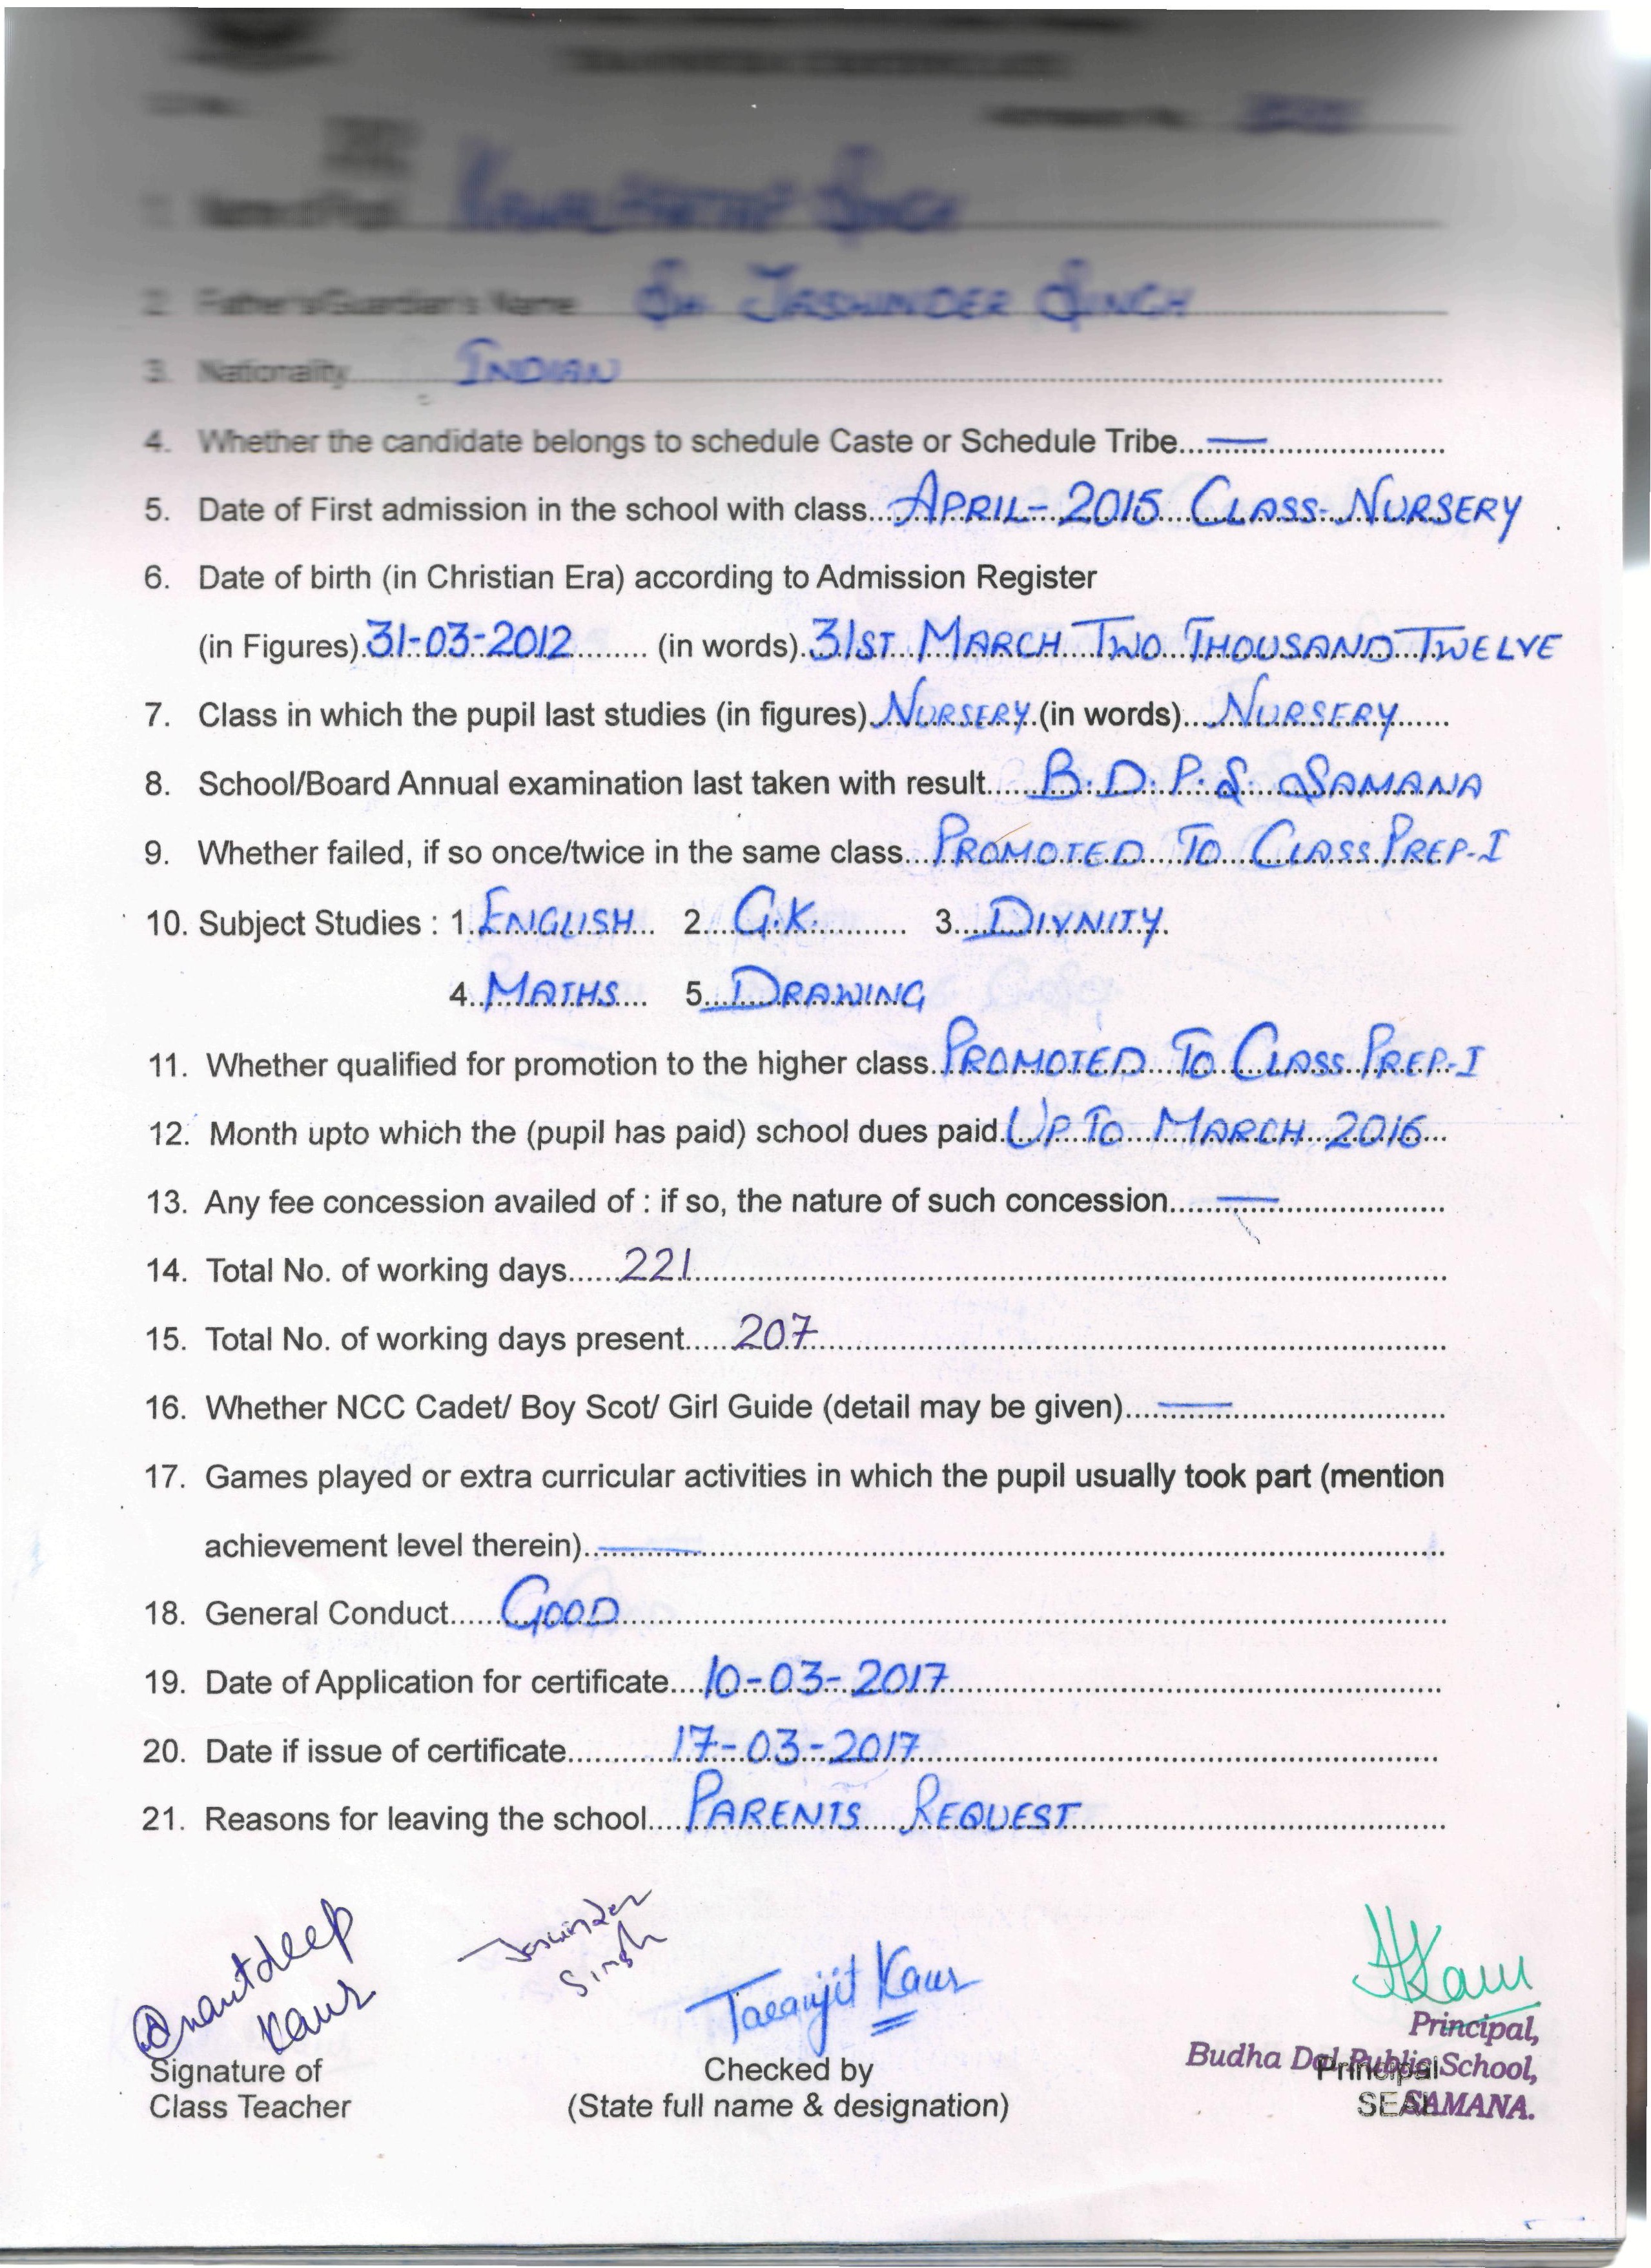 TRANSFER CERTIFICATE
Admission No.
1. Name of Pupil Singh
2. Father's/Guardian's Name Sh Jaswinder Singh
3. Nationality INDIAN
4. Whether the candidate belongs to schedule Caste or Schedule Tribe...—...
5. Date of First admission in the school with class...APRIL-2015 CLASS-NURSERY
6. Date of birth (in Christian Era) according to Admission Register
(in Figures) 31-03-2012 ........ (in words) 31ST MARCH TWO THOUSAND TWELVE
7. Class in which the pupil last studies (in figures) NURSERY (in words)...NURSERY......
8. School/Board Annual examination last taken with result......B.D.P.S. SAMANA
9. Whether failed, if so once/twice in the same class...PROMOTED TO CLASS PREP-I
10. Subject Studies : 1. ENGLISH 2. G.K. 3. DIVNITY
4. MATHS 5. DRAWING
11. Whether qualified for promotion to the higher class..PROMOTED TO CLASS PREP-I
12. Month upto which the (pupil has paid) school dues paid UP TO MARCH 2016
13. Any fee concession availed of : if so, the nature of such concession......—......
14. Total No. of working days......221
15. Total No. of working days present.....207
16. Whether NCC Cadet/ Boy Scot/ Girl Guide (detail may be given)....—......
17. Games played or extra curricular activities in which the pupil usually took part (mention
achievement level therein)..—......
18. General Conduct.....GOOD
19. Date of Application for certificate....10-03-2017
20. Date if issue of certificate..........17-03-2017
21. Reasons for leaving the school....PARENTS REQUEST
Kaur
Jaswinder
Singh
Taranjit Kaur
Kaur
Principal,
Budha Dal Public School,
SAMANA.
Signature of
Class Teacher
Checked by
(State full name & designation)
Principal
SEAL